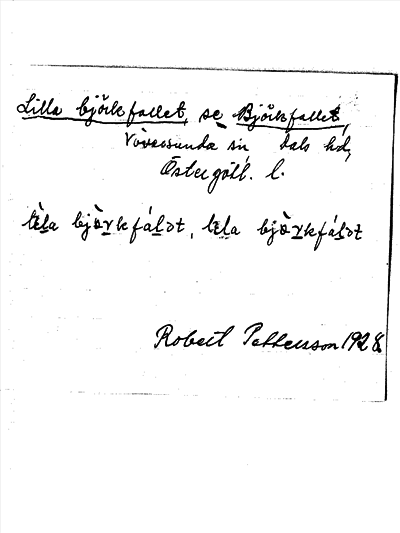 Lilla björkfallet, se Björkfallet,
Väversunda sn Dals hd,
Östergötl. l.
lɛ̀la bjɔ̀rkfálət, lɛla bjɔ̀rkfálət
Robert Pettersson 1928